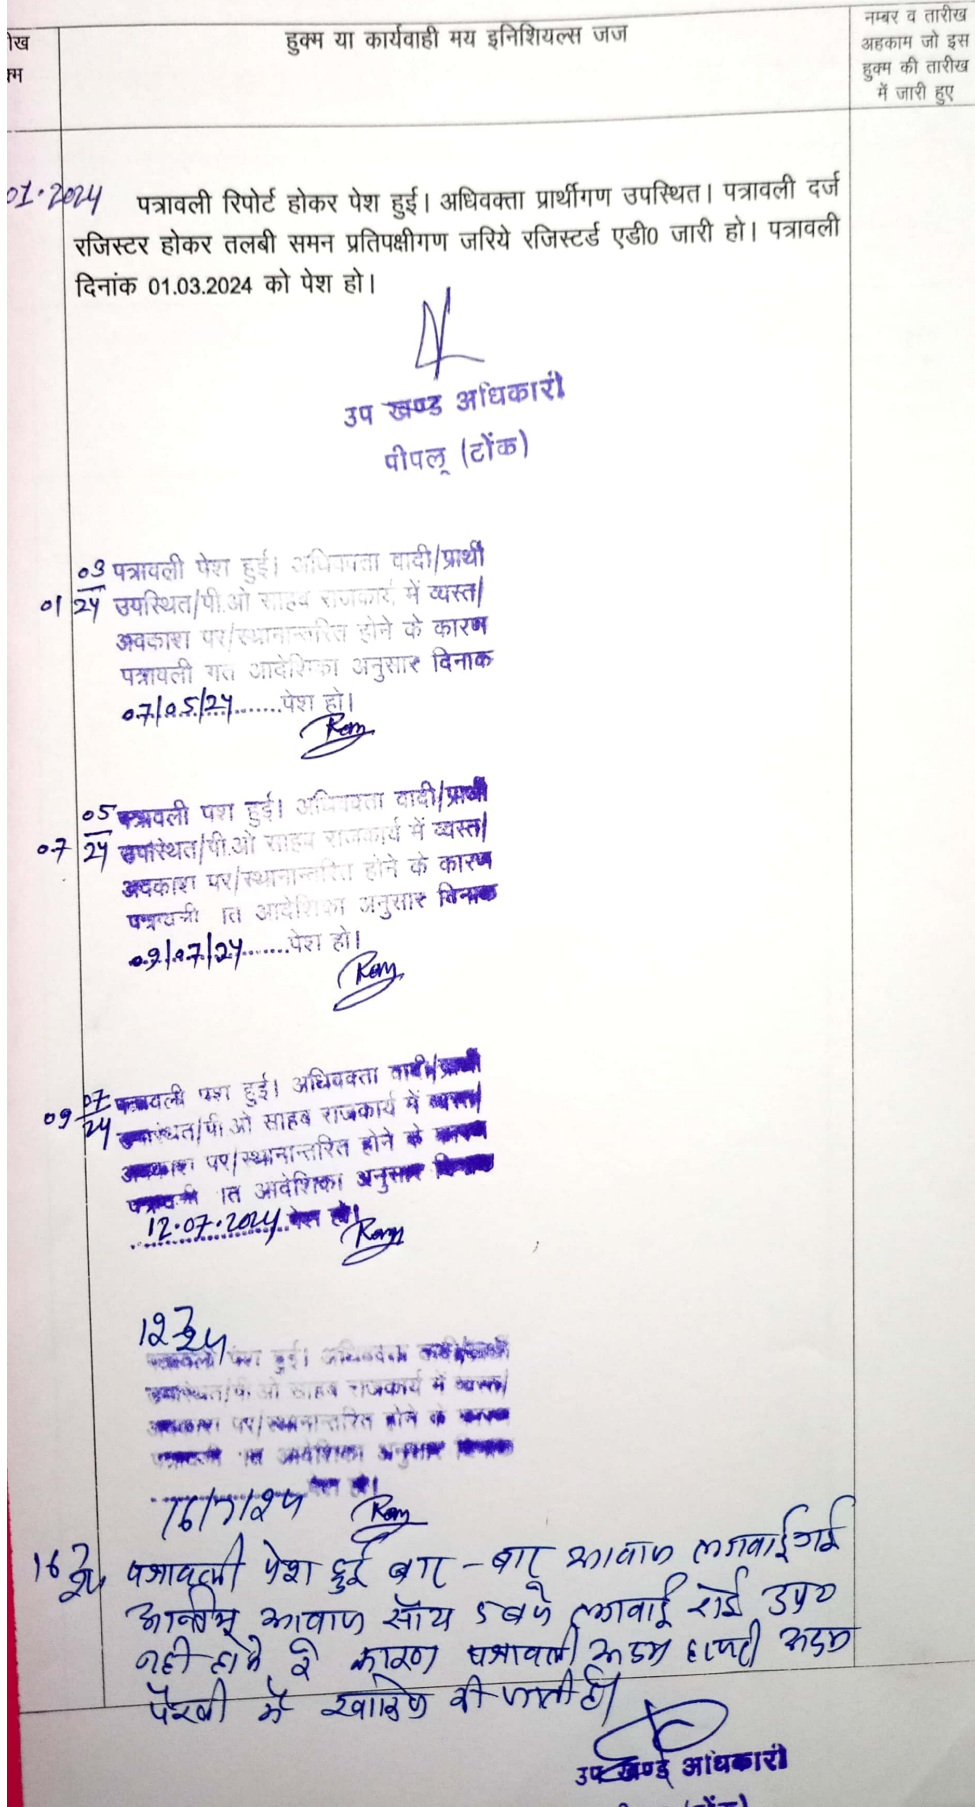 हुक्म या कार्यवाही मय इनिशियल्स जज
नम्बर व तारीख
अहकाम जो इस
हुक्म की तारीख
में जारी हुए
01.2024
पत्रावली रिपोर्ट होकर पेश हुई। अधिवक्ता प्रार्थीगण उपस्थित। पत्रावली दर्ज
रजिस्टर होकर तलबी समन प्रतिपक्षीगण जरिये रजिस्टर्ड एडी0 जारी हो। पत्रावली
दिनांक 01.03.2024 को पेश हो।
उप खण्ड अधिकारी
पीपलू (टोंक)
01 03/24 पत्रावली पेश हुई। अधिवक्ता वादी/प्रार्थी
उपस्थित/पी.ओ साहब राजकार्य में व्यस्त/
अवकाश पर/स्थानान्तरित होने के कारण
पत्रावली गत आदेशिका अनुसार दिनाक
07/05/24 पेश हो।
Ram
07 05/24 पत्रावली पेश हुई। अधिवक्ता वादी/प्रार्थी
उपस्थित/पी.ओ साहब राजकार्य में व्यस्त/
अवकाश पर/स्थानान्तरित होने के कारण
पत्रावली गत आदेशिका अनुसार दिनाक
09/07/24 पेश हो।
Ram
09 07/24 पत्रावली पेश हुई। अधिवक्ता वादी/प्रार्थी
उपस्थित/पी.ओ साहब राजकार्य में व्यस्त/
अवकाश पर/स्थानान्तरित होने के कारण
पत्रावली गत आदेशिका अनुसार दिनाक
12.07.2024 पेश हो।
Ram
12 7/24
पत्रावली पेश हुई। अधिवक्ता वादी/प्रार्थी
उपस्थित/पी.ओ साहब राजकार्य में व्यस्त/
अवकाश पर/स्थानान्तरित होने के कारण
पत्रावली गत आदेशिका अनुसार दिनाक
16/7/24 पेश हो।
Ram
16 7/24 पत्रावली पेश हुई बार-बार आवाज लगवाई गई
आवाज सॉय 5 बजे लगवाई कोई उप०
नही होने के कारण पत्रावली अदम हाजरी अदम
पैरवी में खारिज की जाती है।
उप खण्ड अधिकारी